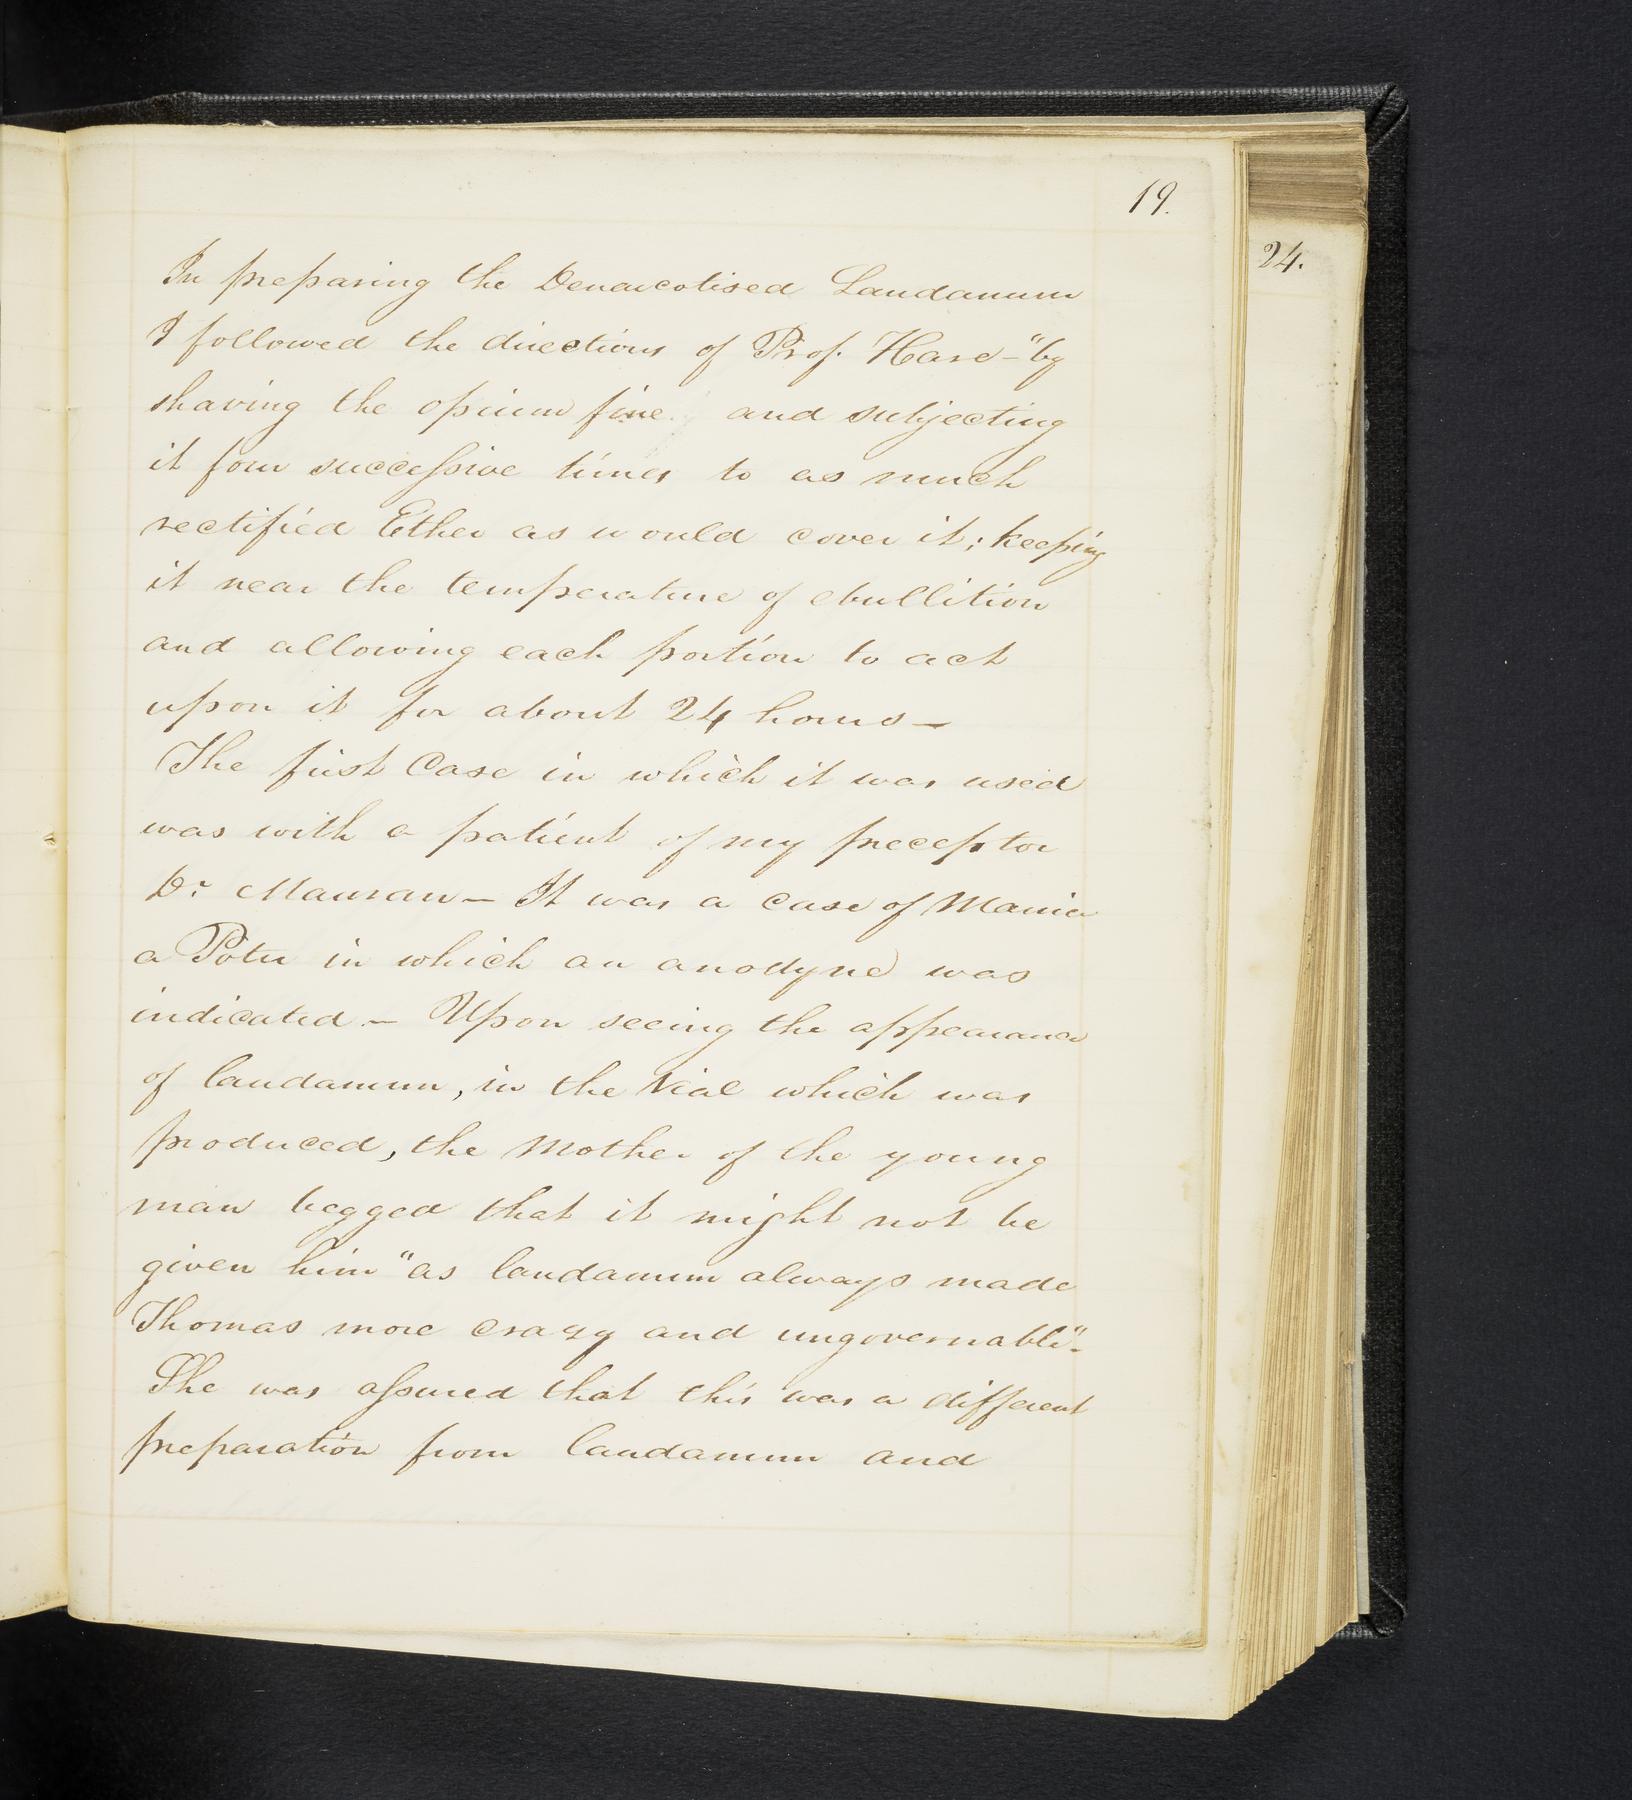 19.
24.
In preparing the Denarcotised Laudanum
I followed the directions of Prof. Hare – "by
shaving the opium fine and subjecting
it four successive times to as much
rectified Ether as would cover it; keeping
it near the temperature of ebullition
and allowing each portion to act
upon it for about 24 hours –
The first Case in which it was used
was with a patient of my preceptor
Dr. Mauran – It was a case of Mania
a Potu in which an anodyne was
indicated – Upon seeing the appearance
of laudanum, in the vial which was
produced, the Mother of the young
man begged that it might not be
given him "as laudanum always made
Thomas more crazy and ungovernable" –
She was assured that this was a different
preparation from laudanum and